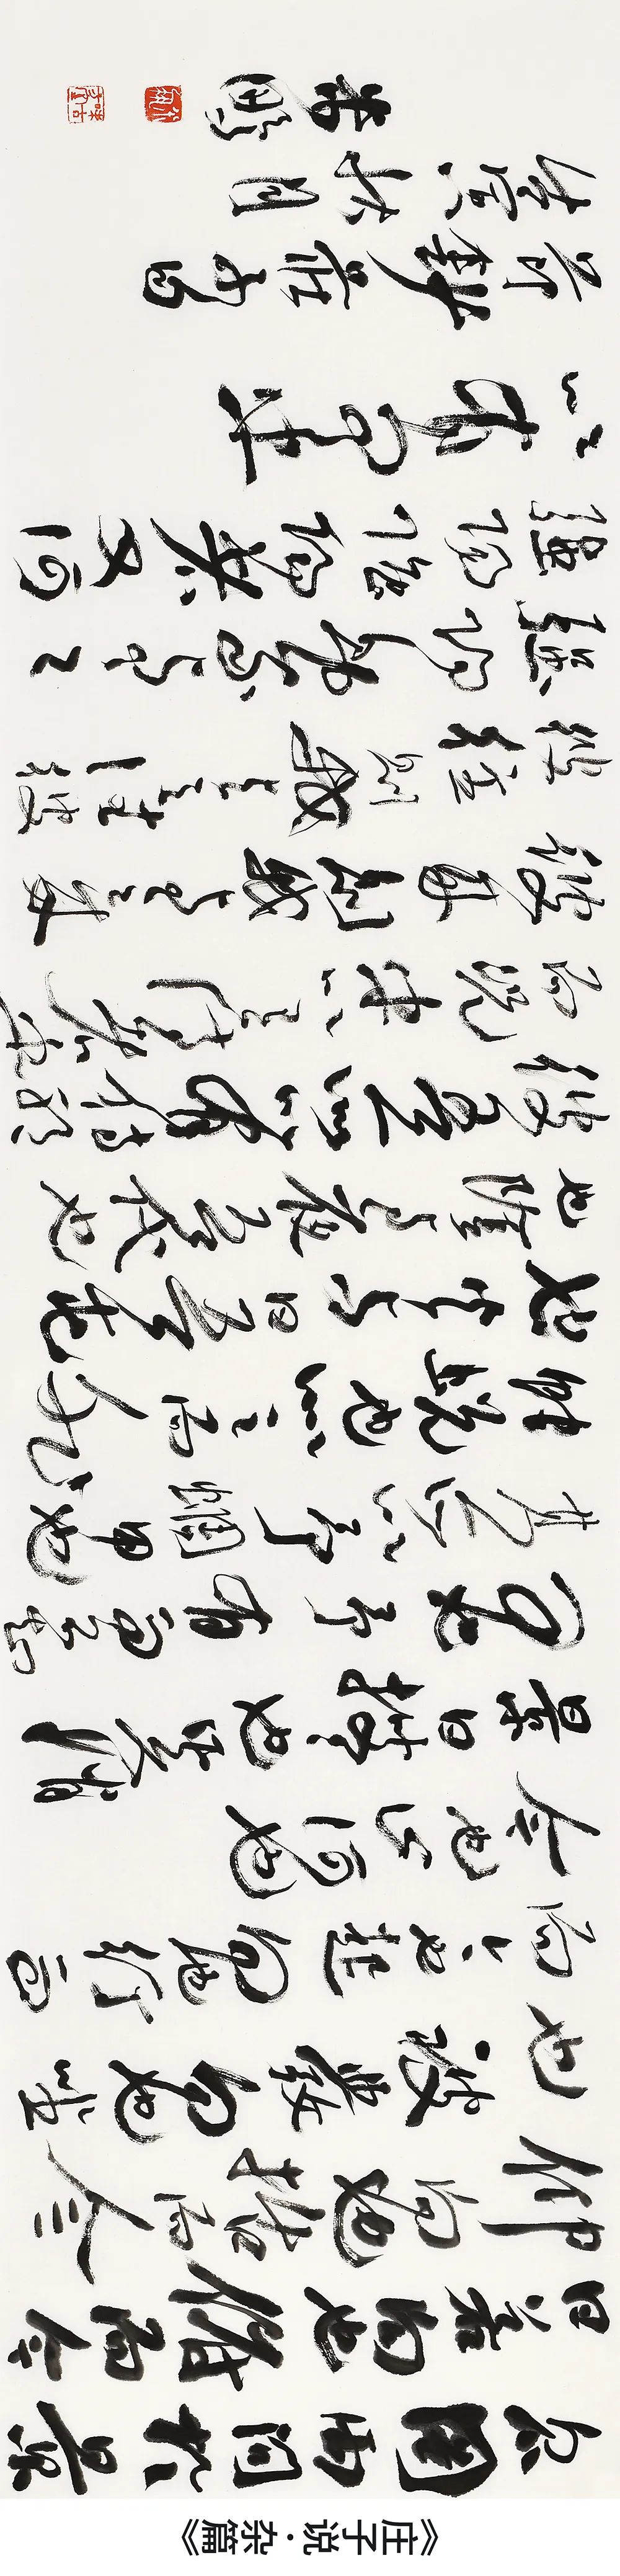 众罔两问於景
曰若向也俯而今
仰向也括而今
也被髮向也坐
而今也起向也行而
今也止何也
景曰搜搜也奚稍
问也予有而不知
其所以予蜩甲也
蛇蜕也似之而非
也火与日吾屯也
也陰与夜吾代也
彼吾所以有待邪
而况乎以无有待者乎
彼来则我与之来
彼往则我与之往彼
强陽则我与之
强陽强陽者又何
以有问乎
庄子
《庄子说·杂篇》